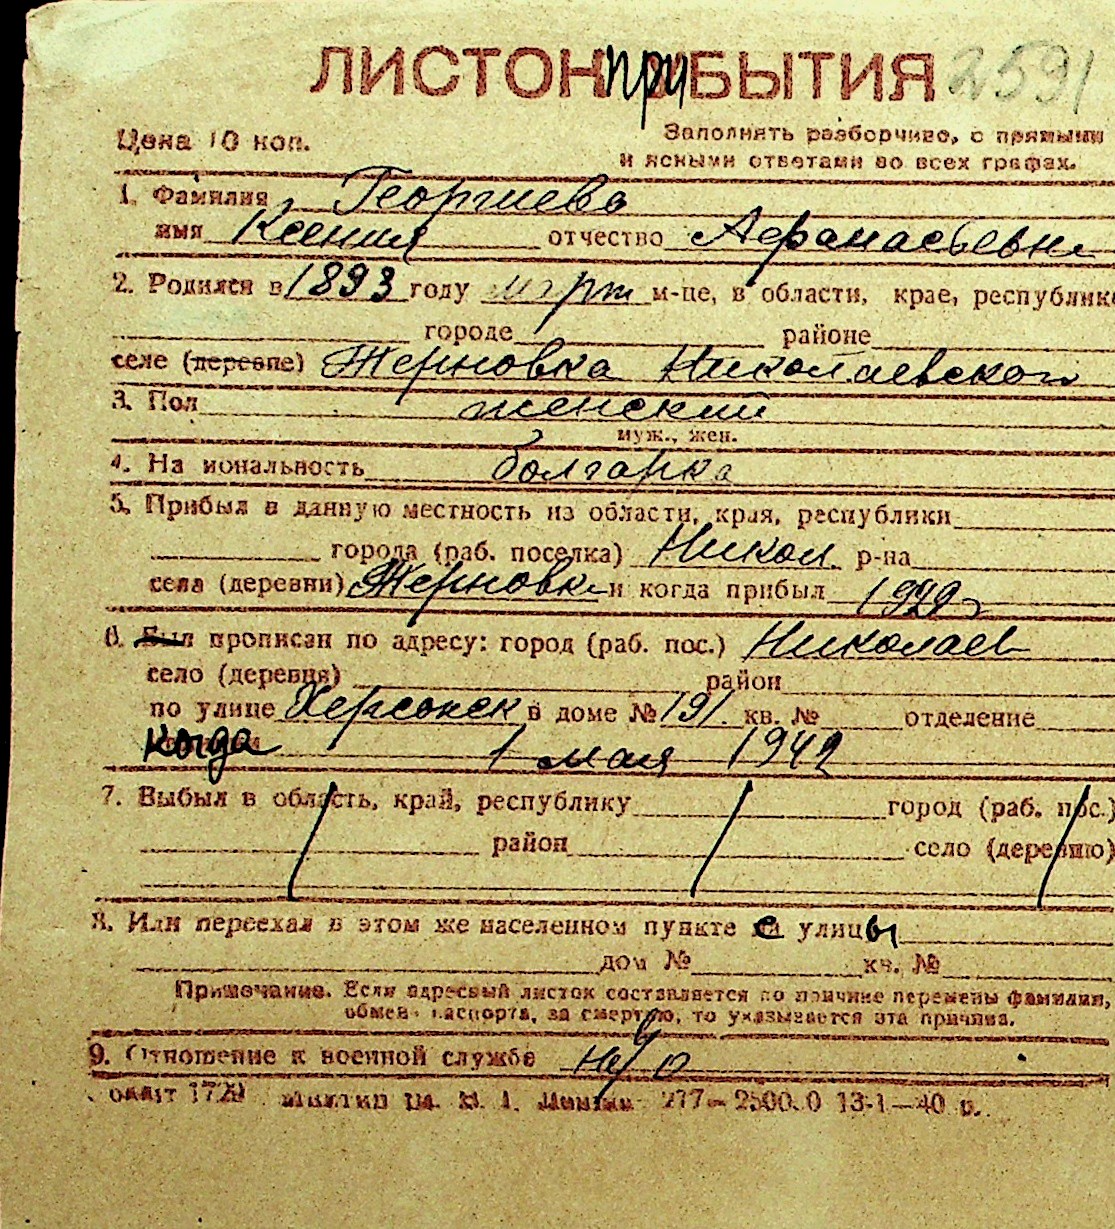 ЛИСТОК ПРИБЫТИЯ 2591
Цена 10 коп.
Заполнять разборчиво, с прямыми
и ясными ответами во всех графах.
1. Фамилия Георгиева
имя Ксения отчество Афанасьевна
2. Родился в 1893 году март м-це, в области, крае, республике
городе районе
селе (деревне) Терновка Николаевской
3. Пол женский
муж., жен.
4. Национальность болгарка
5. Прибыл в данную местность из области, края, республики
города (раб. поселка) Никол. р-на
села (деревни) Терновки и когда прибыл
6. Был прописан по адресу: город (раб. пос.) Николаев
село (деревня) район
по улице Херсонск в доме № 191 кв. № отделение
когда 1 мая 1942
7. Выбыл в область, край, республику город (раб. пос.)
район село (деревню)
8. Или переехал в этом же населенном пункте с улицы
дом № кв. №
Примечание. Если адресный листок составляется по причине перемены фамилии,
обмена паспорта, за смертью, то указывается эта причина.
9. Отношение к военной службе н/в/о
277— 2500.0 13-1—40 р.